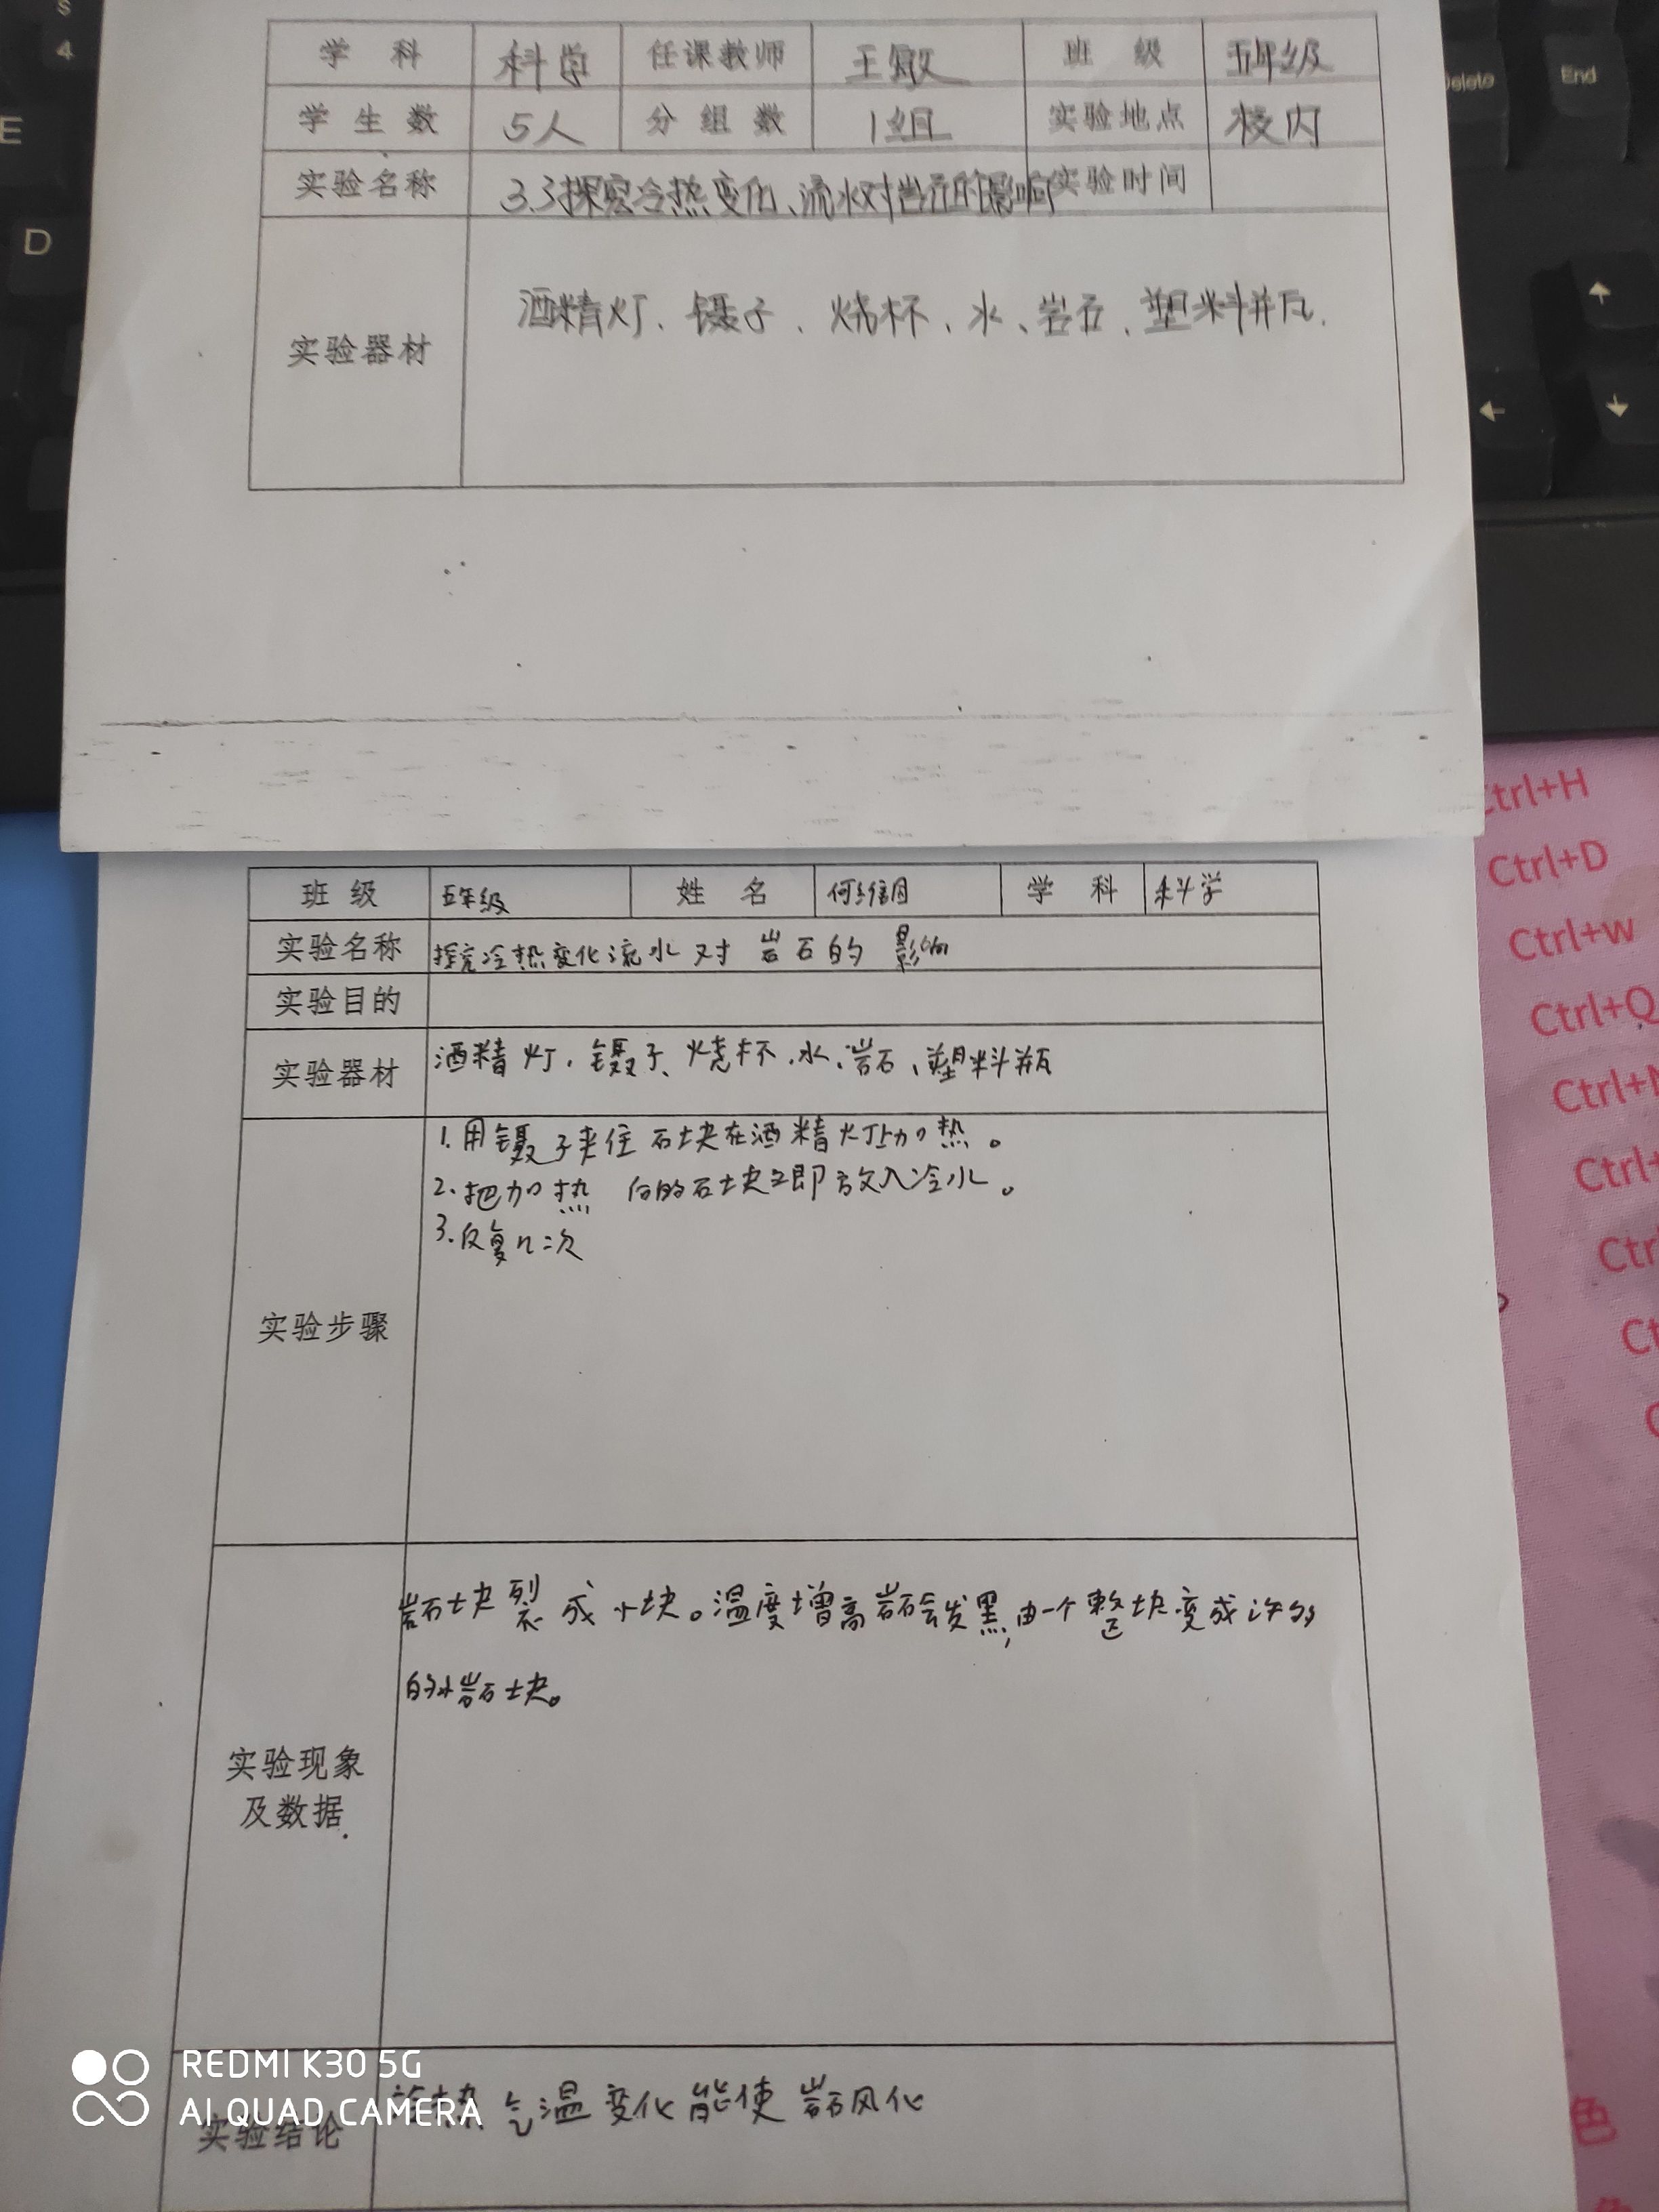 学科 科学 任课教师 王敏 班级 五年级
学生数 5人 分组数 1组 实验地点 校内
实验名称 3.3探究冷热变化、流水对岩石的影响 实验时间
实验器材 酒精灯、镊子、烧杯、水、岩石、塑料瓶.
班级 五年级 姓名 何 学科 科学
实验名称 探究冷热变化流水对岩石的影响
实验目的
实验器材 酒精灯.镊子、烧杯.水.岩石、塑料瓶
实验步骤
1.用镊子夹住石块在酒精灯上加热。
2.把加热 的石块立即放入冷水。
3.反复几次
实验现象
及数据
岩石块裂成小块。温度增高岩石会发黑,由一个整块变成许多
的小岩石块。
实验结论 冷热气温变化能使岩石风化
REDMI K30 5G
AI QUAD CAMERA
S
4
E
D
Delete
End
Ctrl+H
Ctrl+D
Ctrl+w
Ctrl+Q
色